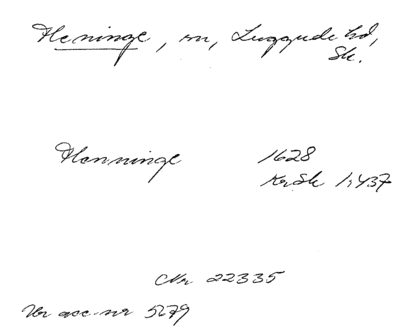 Heninge, sn, Luggude hd,
Sk.
Henninge 1628
KrSk 1:437
Nr 22335
Ur acc. nr 5679